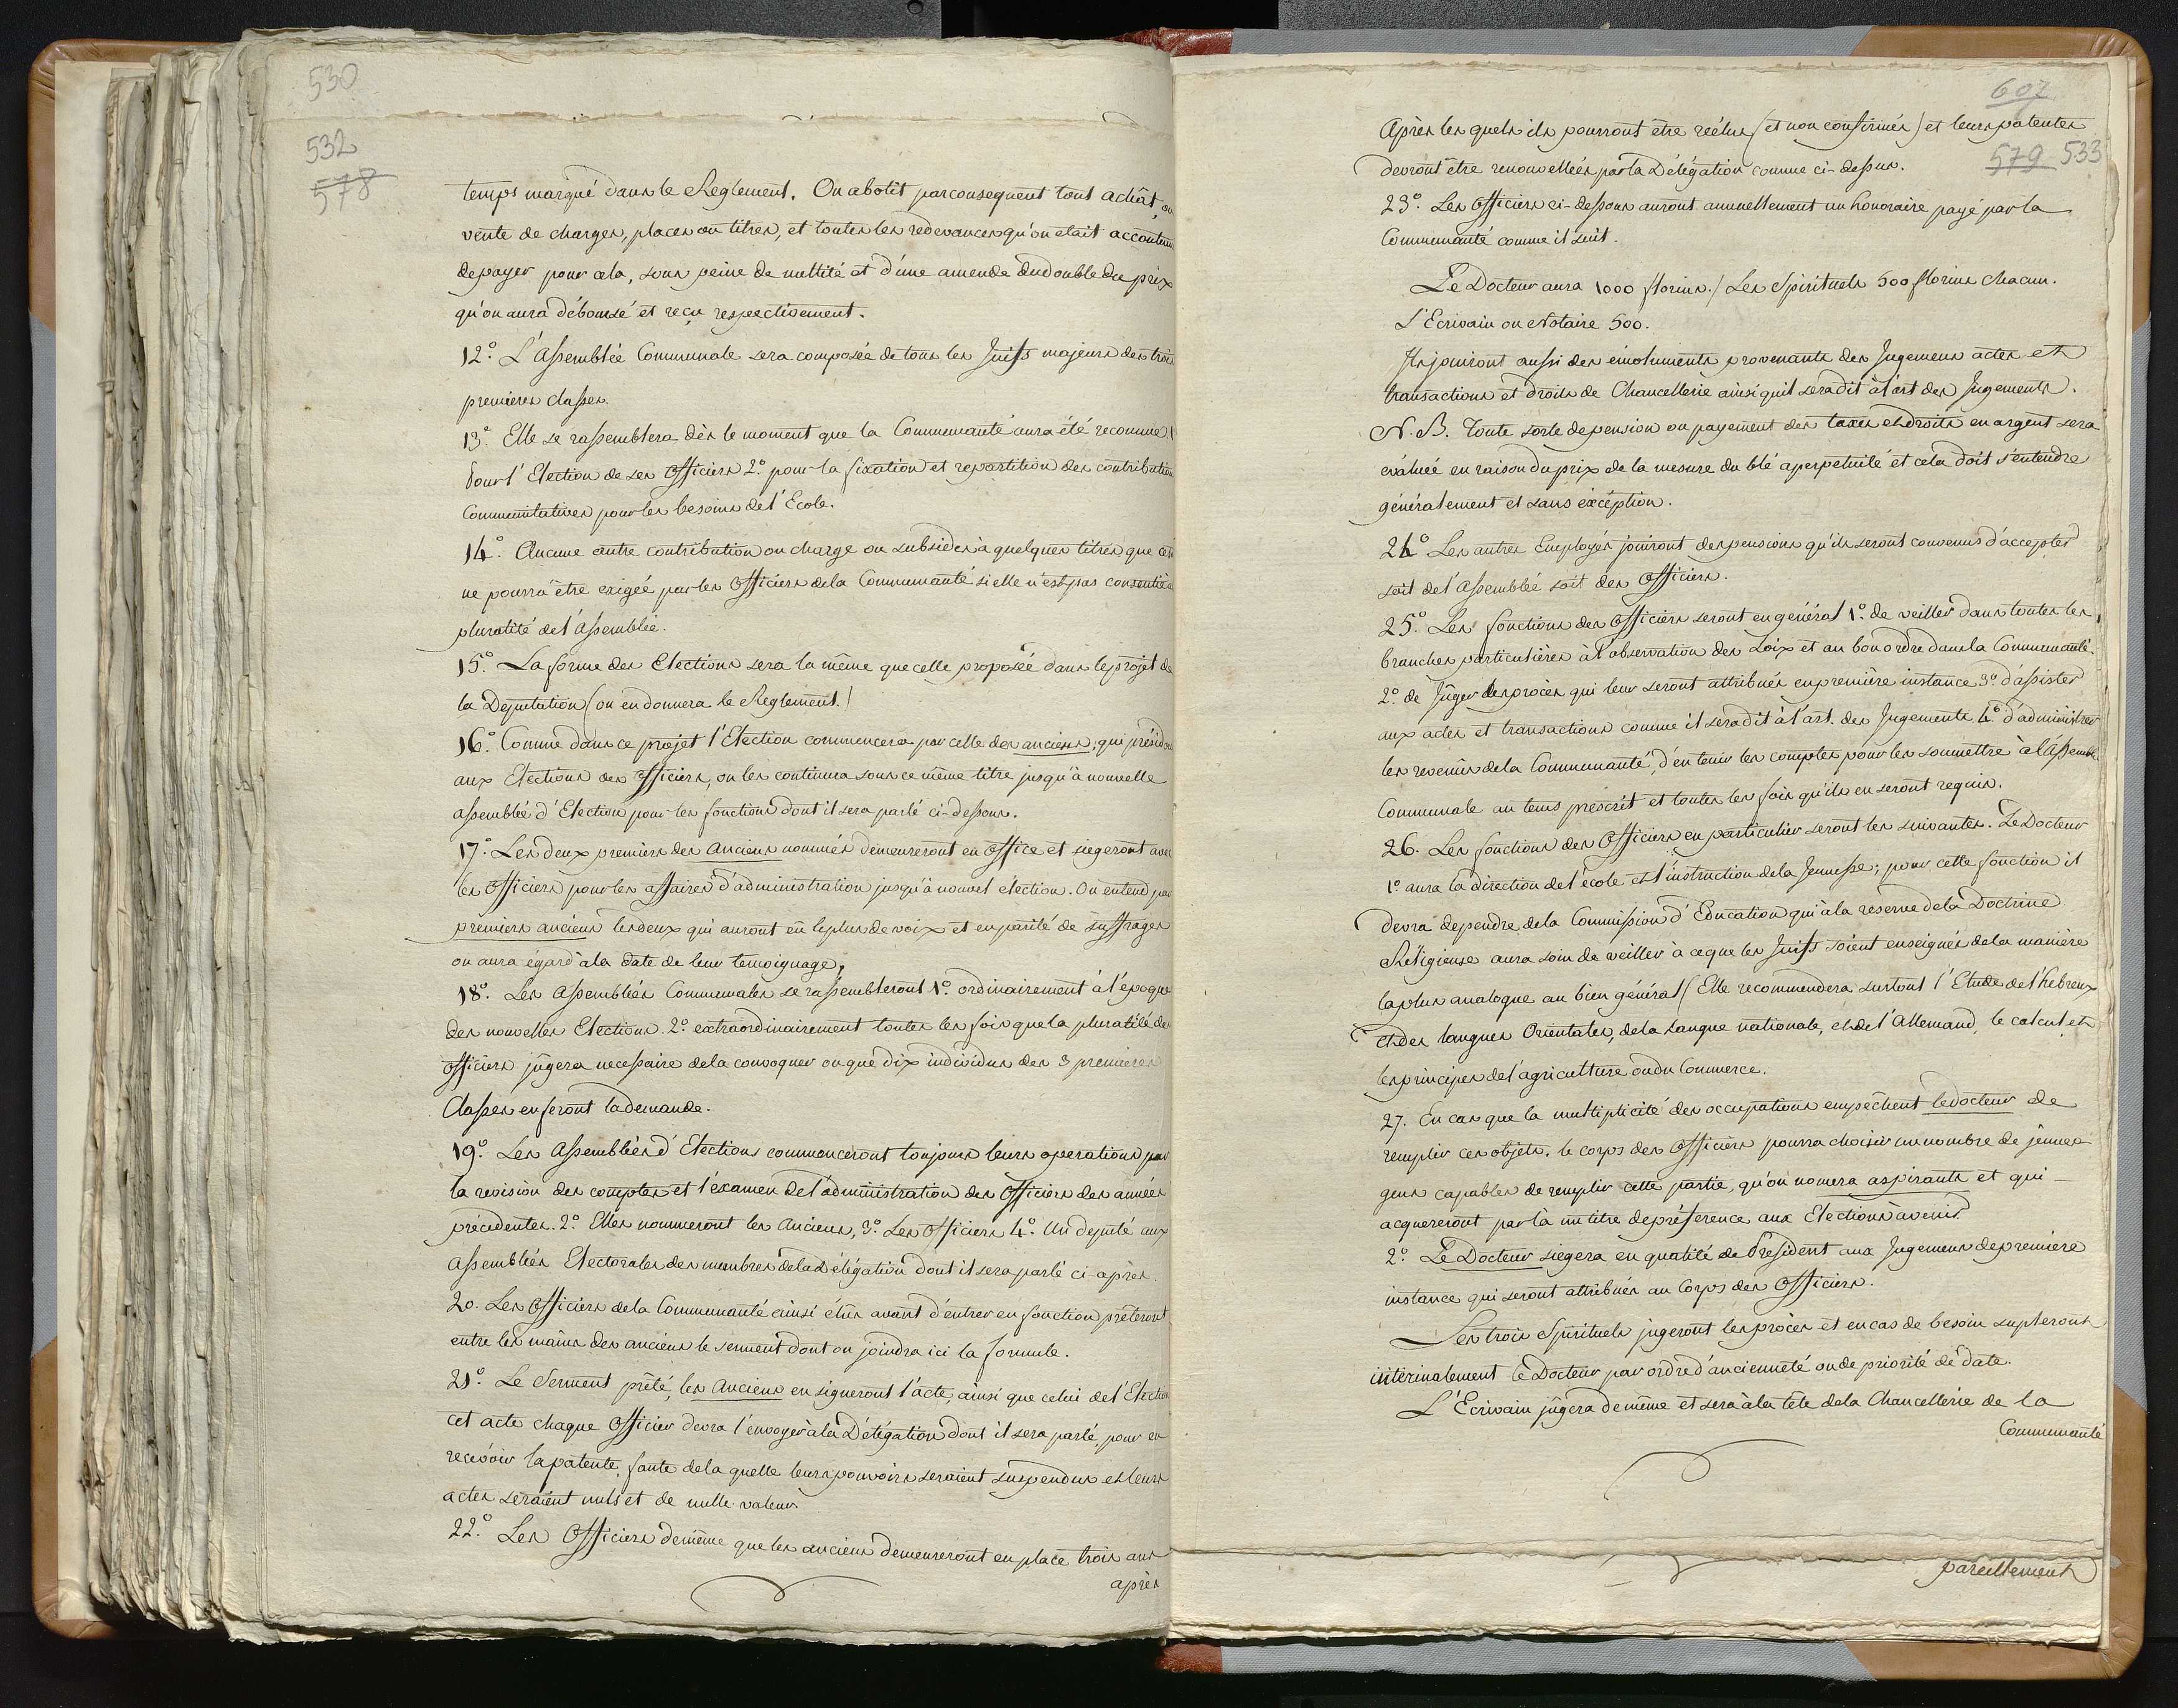 530
532
578
temps marqué dans le Reglement. On abolit parconsequent tout achât, ou
vente de charges, places ou titres, et toutes les redevances qu'on etait accoutumé
de payer pour cela, sous peine de nullité et d'une amende du double du prix
qu'on aura déboursé et reçu respectivement.
12.° L'assemblée Communale sera composée de tous les Juifs majeurs des trois
premieres classes.
13.° Elle se rassemblera dès le moment que la Communauté aura été reconnue 1.°
Pour l'Election de ses Officiers 2.° pour la fixation et repartition des contributions
Communitatives pour les besoins de l'Ecole.
14.° Aucune autre contribution ou charge ou subsides à quelques titres que ce
ne pourra être exigée par les Officiers de la Communauté si elle n'est pas consentie
pluralité de l'assemblée.
15.° La forme des Elections sera la même que celle proposée dans le projet de
la Députation (on en donnera le Reglement.)
16.° Comme dans ce projet l'Election commencera par celle des anciens, qui président
aux Elections des Officiers, on les continuera sous ce même titre jusqu'à nouvelle
assemblée d'Election pour les fonctions dont il sera parlé ci-dessous.
17.° Les deux premiers des Anciens nommés demeureront en Office et siegeront avec
les Officiers pour les affaires d'administration jusqu'à nouvel élection. On entend par
premiers anciens les deux qui auront eû le plus de voix et en parité de suffrages
on aura égard à la date de leur temoignage.
18.° Les Assemblées Communales se rassembleront 1.° ordinairement à l'époque
des nouvelles Elections. 2.° extraordinairement toutes les fois que la pluralité des
Officiers jûgera necessaire de la convoquer ou que dix individus des 3 premieres
Classes en feront la demande.
19.° Les Assemblées d'Elections commenceront toujours leurs operations par
la revision des comptes et l'éxamen de l'administration des Officiers des années
précedentes. 2.° Elles nommeront les Anciens, 3.° Les Officiers 4.° Un député aux
Assemblées Electorales des membres de la Délégation dont il sera parlé ci-après.
20. Les Officiers de la Communauté ainsi élûs avant d'entrer en fonction prêteront
entre les mains des anciens le serment dont on joindra ici la formule.
21.° Le Serment prêté, les Anciens en signeront l'acte, ainsi que celui de l'Election
cet acte chaque Officier devra l'envoyer à la Délégation dont il sera parlé, pour en
recevoir la patente, faute de la quelle leurs pouvoirs seraient suspendus et leurs
actes seraient nuls et de nulle valeur.
22.° Les Officiers de même que les anciens demeureront en place trois ans
après
607
579 533
Après les quels ils pourront être réélus (et non confirmés) et leurs patentes
devront être renouvellées par la Délégation comme ci-dessus.
23.° Les Officiers ci-dessous auront annuellement un honoraire payé par la
Communauté comme il suit.
Le Docteur aura 1000 florins. / Les Spirituels 500 florins chacun.
L'Ecrivain ou Notaire 500.
Ils jouiront aussi des émoluments provenants des Jugemens actes et
transactions et droits de Chancellerie ainsi qu'il sera dit à l'art des Jugements.
N. B. Toute sorte de pension ou payement des taxes et droits en argent sera
évaluée en raison du prix de la mesure du blé a perpetuité et cela doit s'entendre
généralement et sans éxception.
24.° Les autres Employés jouiront des pensions qu'ils seront convenus d'accepter
soit de l'Assemblée soit des Officiers.
25.° Les fonctions des Officiers seront en général 1.° de veiller dans toutes les
branches particulières à l'observation des Loix et au bon ordre dans la Communauté.
2.° de Jûger des procès qui leur seront attribués en première instance 3.° d'assister
aux actes et transactions comme il sera dit à l'art. des Jugements 4.° d'administrer
les revenus de la Communauté, d'en tenir les comptes pour les soumettre à l'Assemblée
Communale au tems prescrit et toutes les fois qu'ils en seront requis.
26. Les fonctions des Officiers en particulier seront les suivantes. Le Docteur
1.° aura la direction de l'école et l'instruction de la Jeunesse; pour cette fonction il
devra dependre de la Commission d'Education qui à la reserve de la Doctrine
Réligieuse aura soin de veiller à ce que les Juifs soient enseignés de la manière
la plus analogue au bien général (Elle recommendera surtout l'Etude de l'hebreux
et des langues Orientales, de la langue nationale, et de l'Allemand, le calcul et
les principes de l'agriculture ou du Commerce.
27. En cas que la multiplicité des occupations empêchent le docteur de
remplir ces objets, le corps des Officiers pourra choisir un nombre de jeunes
gens capables de remplir cette partie, qu'on nomera aspirants et qui
acquereront par là un titre de préference aux Elections à venir.
2.° Le Docteur siegera en qualité de Président aux Jugemens de premiere
instance qui seront attribués au Corps des Officiers.
Les trois Spirituels jugeront les procès et en cas de besoin supleront
intérinalement le Docteur par ordre d'ancienneté ou de priorité de date.
L'Ecrivain jûgera de même et sera à la tête de la Chancellerie de la
Communauté
pareillement